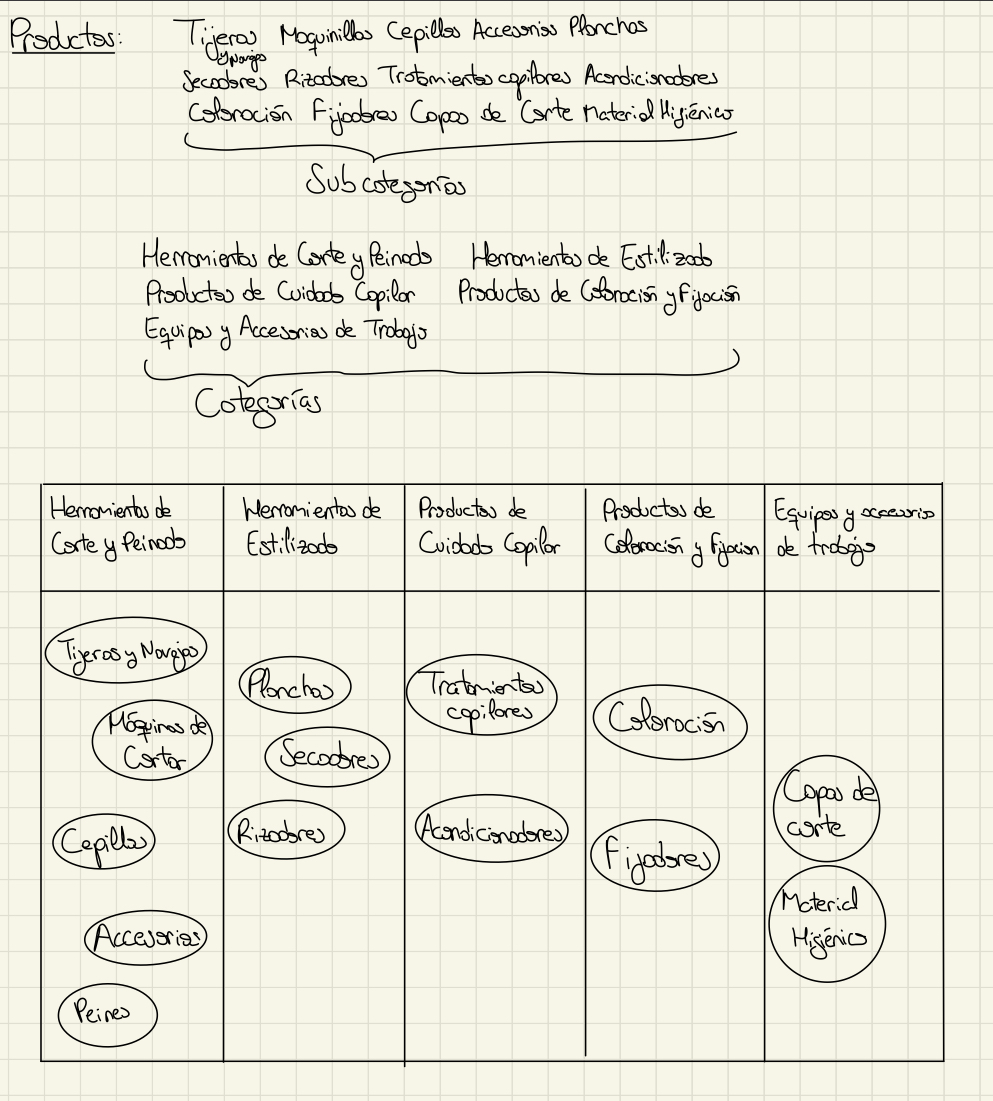 Productos: Tijeras Maquinillas Cepillos Accesorios Planchas
y Navajas
Secadores Rizadores Tratamientos capilares Acondicionadores
Coloración Fijadores Capas de Corte Material Higiénico
Subcategorías
Herramientas de Corte y Peinado Herramientas de Estilizado
Productos de Cuidado Capilar Productos de Coloración y Fijación
Equipos y Accesorios de Trabajo
Categorías
Herramientas de
Corte y Peinado
Herramientas de
Estilizado
Productos de
Cuidado Capilar
Productos de
Coloración y Fijacion
Equipos y accesorio
de trabajo
Tijeras y Navajas
Máquinas de
Cortar
Cepillos
Accesorios
Peines
Planchas
Secadores
Rizadores
Tratamientos
capilares
Acondicionadores
Coloración
Fijadores
Capas de
corte
Material
Higiénico